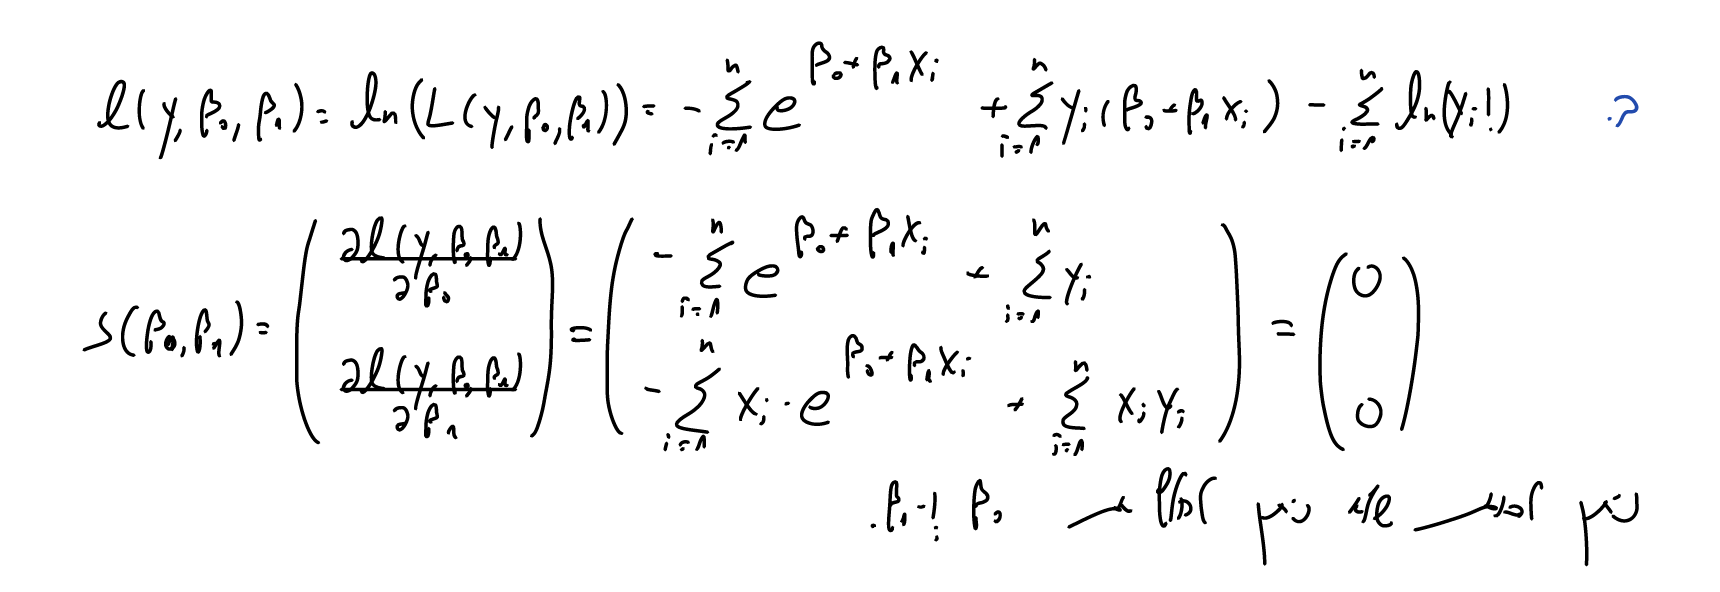 ℓ(y, β₀, β₁) = ln(L(y, β₀, β₁)) = - ∑_{i=1}^{n} e^{β₀ + β₁x_i} + ∑_{i=1}^{n} y_i(β₀ + β₁x_i) - ∑_{i=1}^{n} ln(y_i!) .2
S(β₀, β₁) = ( ∂ℓ(y, β₀, β₁)/∂β₀ ; ∂ℓ(y, β₀, β₁)/∂β₁ ) = ( - ∑_{i=1}^{n} e^{β₀ + β₁x_i} + ∑_{i=1}^{n} y_i ; - ∑_{i=1}^{n} x_i · e^{β₀ + β₁x_i} + ∑_{i=1}^{n} x_i y_i ) = ( 0 ; 0 )
ניתן שלא ניתן לחלץ את β₀ ו-β₁.